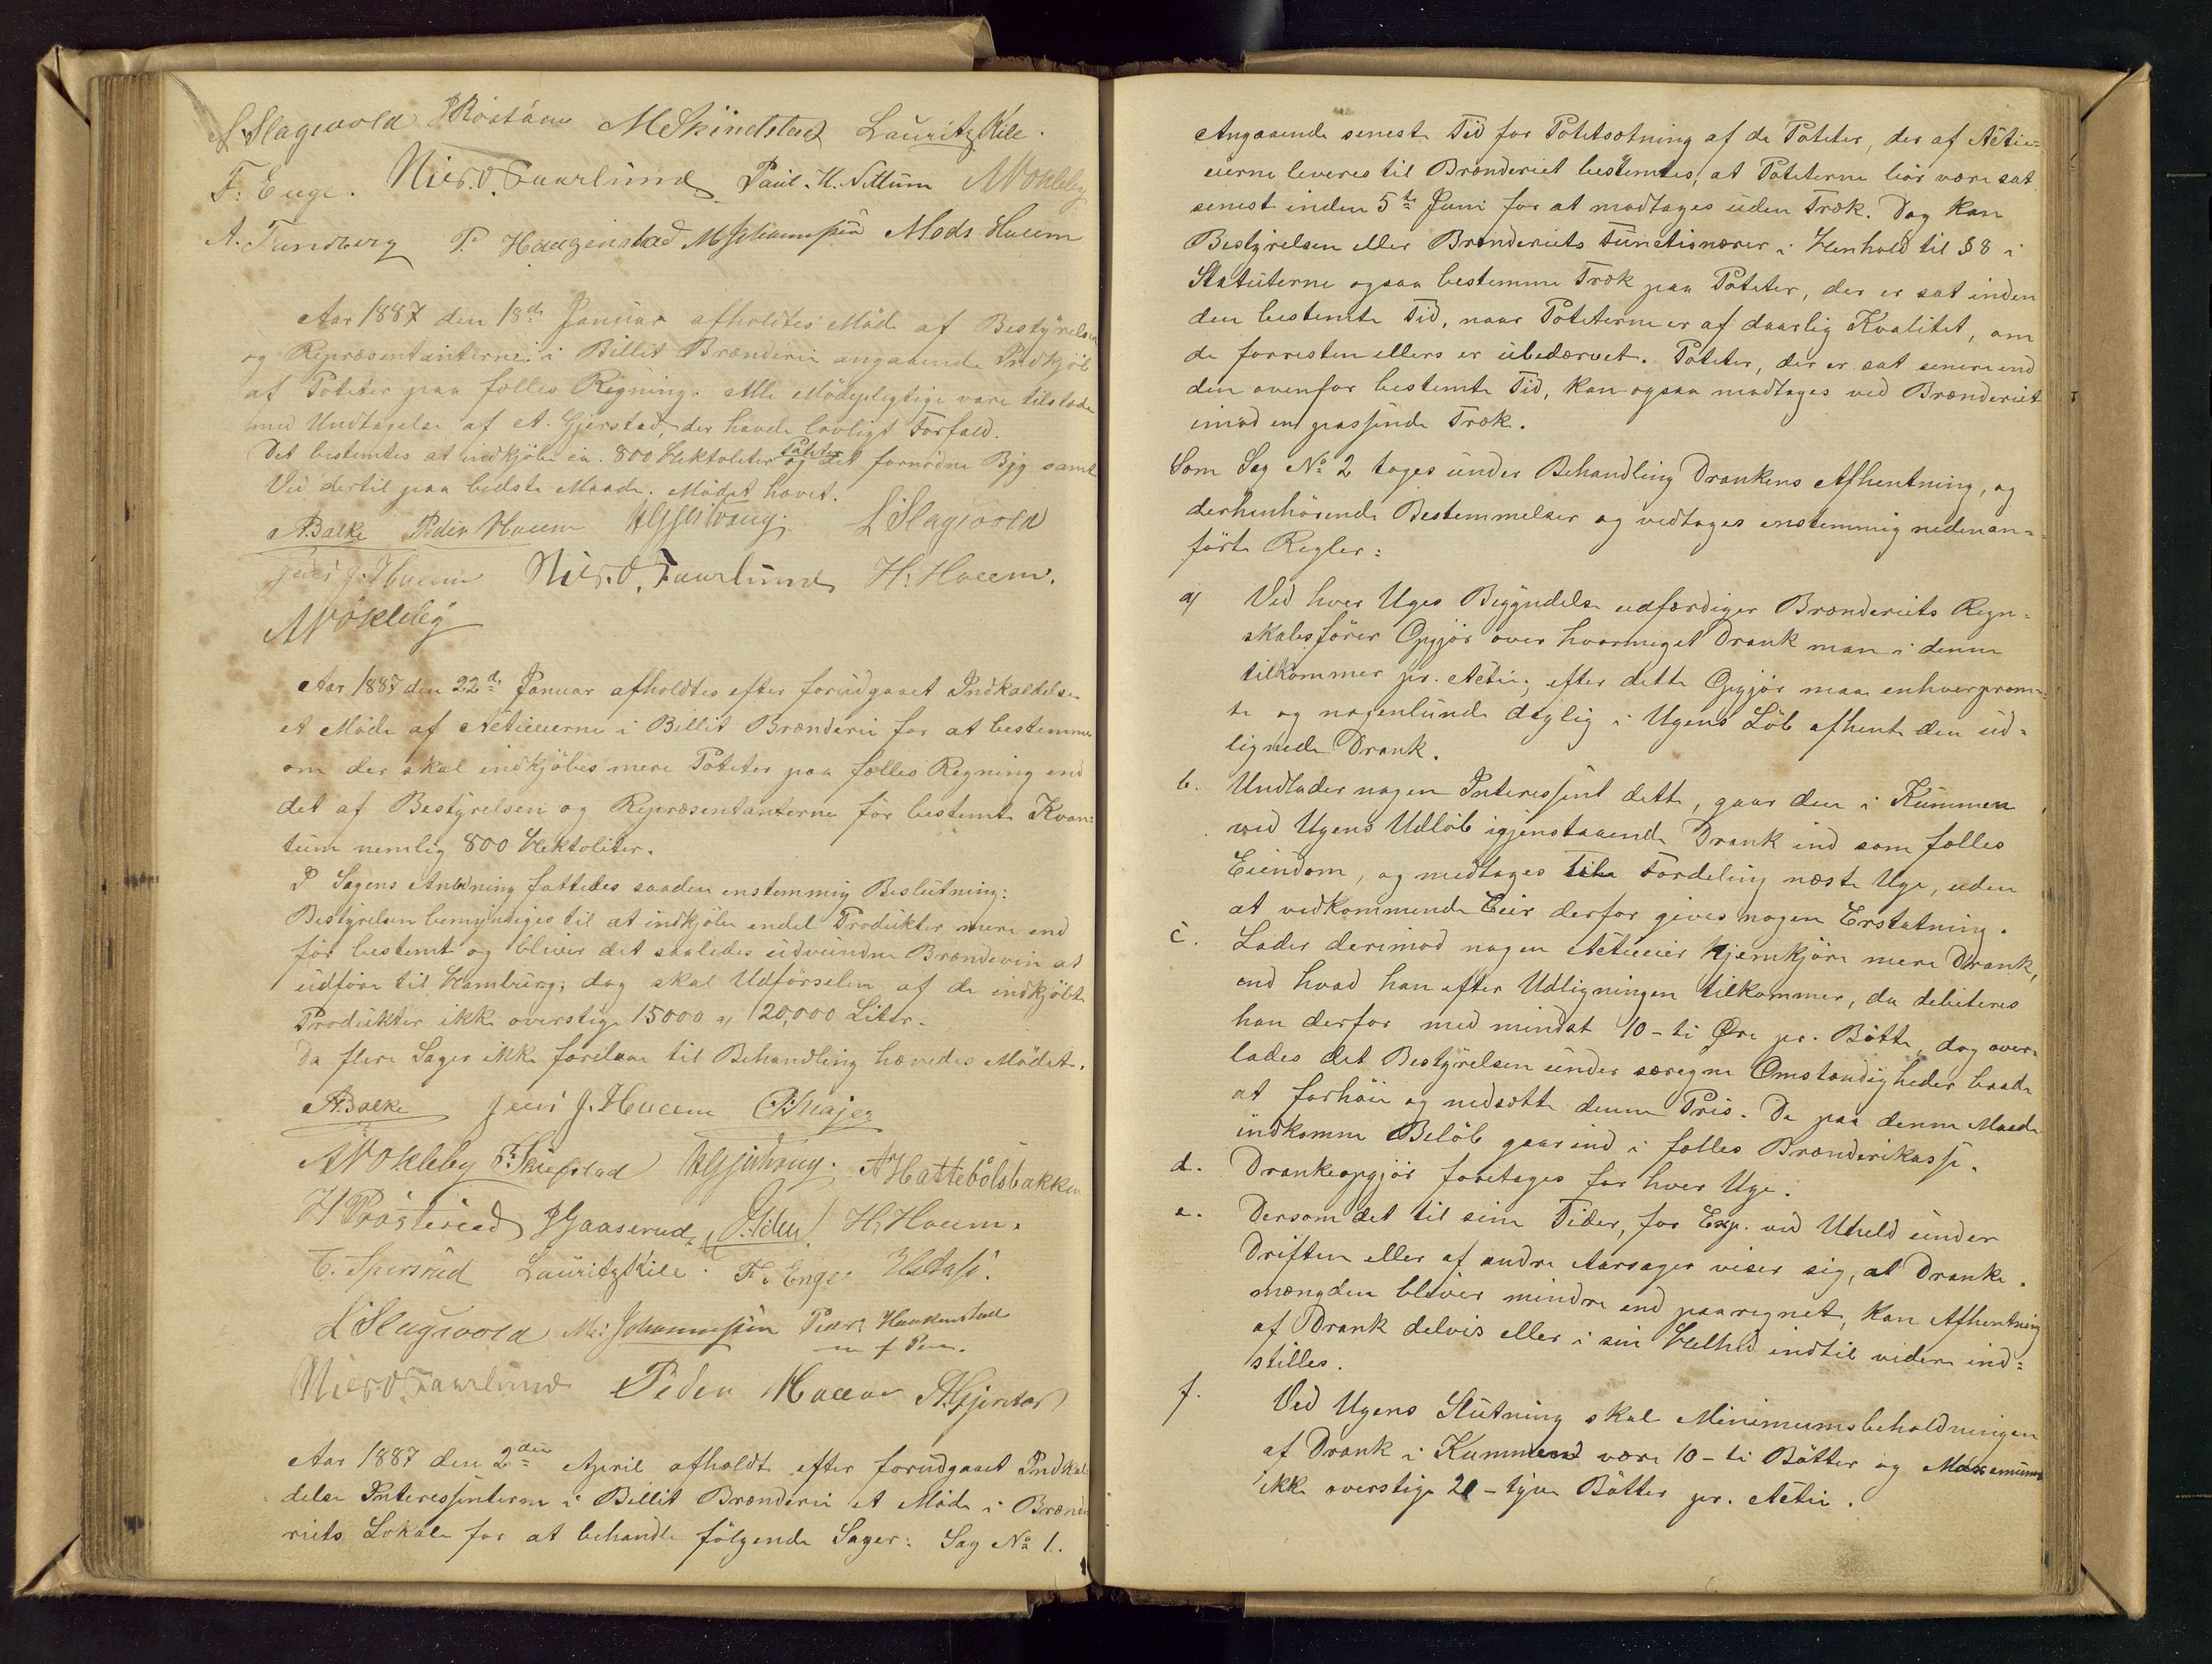 L Slagsvold J Röstöen M Skindstad Lauritz Kile.
F. Enge. Nils O. Faarlund Paul. H. Nettum A Nökleby
A. Tandberg P. Haagenstad M Johannesen Mads Hveem
Aar 1887 den 18de Januar afholdtes Möde af Bestyrelsen
og Repræsentanterne i Billit Brænderi angaaende Indkjöb
af Poteter paa fælles Regning. Alle Mödepligtige vare tilstede
med Undtagelse af A. Gjerstad, der havde lovligt Forfald.
Det bestemtes at indkjöbe ca. 800 Hektoliter Poteter og det fornödne Byg samt
Ved dertil paa bedste Maade. Mödet hævet.
A. Balke Peder Hveem L Slagsvold
Jens J. Hveem Nils O. Faarlund H. Hveem.
A Nökleby
Aar 1887 den 22de Januar afholdtes efter forudgaaet Indkaldelse
et Möde af Actieeierne i Billit Brænderi for at bestemme
om der skal indkjöbes mere Poteter paa fælles Regning end
det af Bestyrelsen og Repræsentanterne för bestemte Kvan=
tum nemlig 800 Hektoliter.
I Sagens Anledning fattedes saaden enstemmig Beslutning:
Bestyrelsen bemyndiges til at indkjöbe endel Produkter mere end
för bestemt og bliver det saaledes udvundne Brændevin at
udföre til Hamburg; dog skal Udförselen af de indkjöbte
Produkter ikke overstige 15000 a 120,000 Liter.
Da flere Sager ikke forelaae til Behandling hævedes Mödet.
A. Balke Jens J. Hveem
A Nökleby A Hattebölsbakken
H Prösterud J Gaaserud H. Hveem.
Lauritz Kile F. Enge
L Slagsvold M. Johannesen Peder Haakenstad
m f Pen.
Nils O. Faarlund Peder Hveem A. Gjerstad
Aar 1887 den 2den April afholdt efter forudgaaet Indkal=
delse Interessenterne i Billit Brænderi et Möde i Brænde
riets Lokale for at behandle fölgende Sager: Sag No 1.
Angaaende seneste Tid for Potetsætning af de Poteter, der af Actie=
eierne leveres til Brænderiet bestemtes, at Poteterne bör være sat
senest inden 5te Juni for at modtages uden Træk. Dog kan
Bestyrelsen eller Brænderiets Functionærer i Henhold til § 8 i
Statuterne ogsaa bestemme Træk paa Poteter, der er sat inden
den bestemte Tid, naar Poteterne er af daarlig Kvalitet, om
de forresten ellers er ubedærvet. Poteter, der er sat senere end
den ovenfor bestemte Tid, kan ogsaa modtages ved Brænderiet
imod en passende Træk.
Som Sag No 2 toges under Behandling Drankens Afhentning, og
derhenhörende Bestemmelser og vedtoges enstemmig nedenan=
förte Regler:
a) Ved hver Uges Begyndelse udfærdiger Brænderiets Regn=
skabsförer Opgjör over hvormeget Drank man i denne
tilkommer pr. Actie; efter dette Opgjör maa enhver promp=
te og nogenlunde daglig i Ugens Löb afhente den ud=
lignede Drank.
b. Undlader nogen Interessent dette, gaar den i Kummen
ved Ugens Udlöb igjenstaaende Drank ind som fælles
Eiendom, og medtages til Fordeling næste Uge, uden
at vedkommende Eier derfor gives nogen Erstatning.
c. Lader derimod nogen Actieeier hjemkjöre mere Drank,
end hvad han efter Udligningen tilkommer, da debiteres
han derfor med mindst 10 - ti Öre pr. Bötte, dog over=
lades det Bestyrelsen under særegne Omstændigheder baade
at forhöie og nedsætte denne Pris. De paa denne Maade
indkomne Belöb gaar ind i fælles Brænderikasse.
d. Drankeopgjör foretages for hver Uge.
e. Dersom det til sine Tider, for Exp. ved Uheld under
Driften eller af andre Aarsager viser sig, at Dranke=
mængden bliver mindre end paaregnet, kan Afhentning
af Drank delvis eller i sin Helhed indtil videre ind=
stilles.
f. Ved Ugens Slutning skal Minimumsbeholdningen
af Drank i Kummen være 10 - ti Bötter og Maximum
ikke overstige 20 - tyve Bötter pr. Actie.